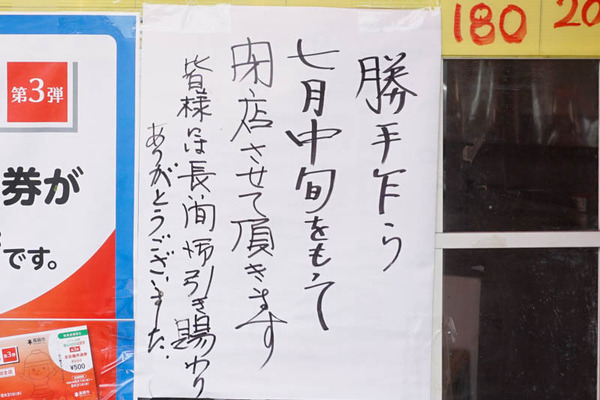 勝手乍ら
七月中旬をもって
閉店させて頂きます
皆様には長い間御引き賜わり
ありがとうございました。
180
20
第3弾
券が
です。
¥500